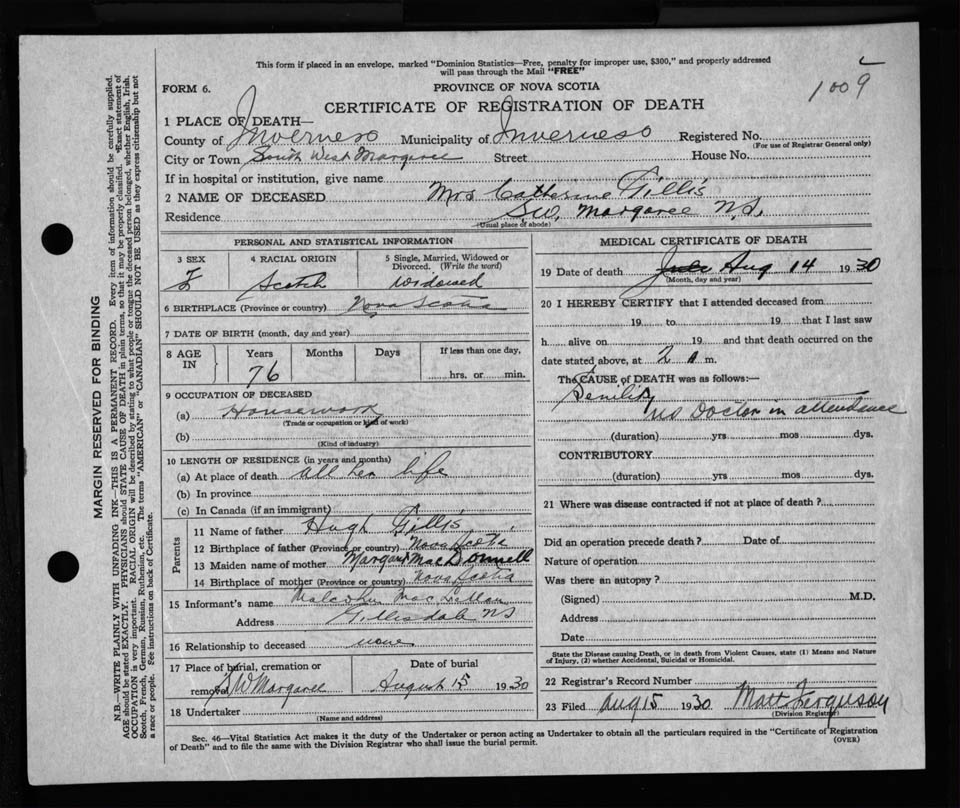 This form if placed in an envelope, marked "Dominion Statistics—Free, penalty for improper use, $300," and properly addressed
will pass through the Mail "FREE"
FORM 6.
PROVINCE OF NOVA SCOTIA
1009
CERTIFICATE OF REGISTRATION OF DEATH
1 PLACE OF DEATH—
County of Inverness Municipality of Inverness Registered No.
(For use of Registrar General only)
City or Town South West Margaree Street House No.
If in hospital or institution, give name
2 NAME OF DECEASED Mrs Catherine Gillis
Residence S.W. Margaree N.S.
(Usual place of abode)
PERSONAL AND STATISTICAL INFORMATION
3 SEX 4 RACIAL ORIGIN 5 Single, Married, Widowed or
Divorced. (Write the word)
F Scotch Widowed
6 BIRTHPLACE (Province or country) Nova Scotia
7 DATE OF BIRTH (month, day and year)
8 AGE IN Years Months Days If less than one day,
76 hrs. or min.
9 OCCUPATION OF DECEASED
(a) Housework
(Trade or occupation or kind of work)
(b)
(Kind of industry)
10 LENGTH OF RESIDENCE (in years and months)
(a) At place of death all her life
(b) In province
(c) In Canada (if an immigrant)
Parents
11 Name of father Hugh Gillis
12 Birthplace of father (Province or country) Nova Scotia
13 Maiden name of mother Margaret MacDonnell
14 Birthplace of mother (Province or country) Nova Scotia
15 Informant's name Malcolm MacLellan
Address Gillisdale NS
16 Relationship to deceased none
17 Place of burial, cremation or Date of burial
removal S W Margaree August 15 1930
18 Undertaker
(Name and address)
MEDICAL CERTIFICATE OF DEATH
19 Date of death July Aug 14 1930
(Month, day and year)
20 I HEREBY CERTIFY that I attended deceased from
19 to 19 that I last saw
h alive on 19 and that death occurred on the
date stated above, at 2 m.
The CAUSE of DEATH was as follows:—
Senility
no Doctor in attendance
(duration) yrs mos dys.
CONTRIBUTORY
(duration) yrs mos dys.
21 Where was disease contracted if not at place of death?
Did an operation precede death? Date of
Nature of operation
Was there an autopsy?
(Signed) M.D.
Address
Date
State the Disease causing Death, or in death from Violent Causes, state (1) Means and Nature
of Injury, (2) whether Accidental, Suicidal or Homicidal.
22 Registrar's Record Number
23 Filed Aug 15 1930 Matt Ferguson
(Division Registrar)
Sec. 46—Vital Statistics Act makes it the duty of the Undertaker or person acting as Undertaker to obtain all the particulars required in the "Certificate of Registration
of Death" and to file the same with the Division Registrar who shall issue the burial permit.
(OVER)
MARGIN RESERVED FOR BINDING
N.B.—WRITE PLAINLY WITH UNFADING INK—THIS IS A PERMANENT RECORD. Every item of information should be carefully supplied.
AGE should be stated EXACTLY. PHYSICIANS should STATE CAUSE OF DEATH in plain terms, so that it may be properly classified. Exact statement of
OCCUPATION is very important. RACIAL ORIGIN will be described by stating to what people or tongue the deceased person belonged, whether English, Irish,
Scotch, French, German, Russian, Ruthenian, etc. The terms "AMERICAN" or "CANADIAN" SHOULD NOT BE USED as they express citizenship but not
a race or people. See instructions on back of Certificate.